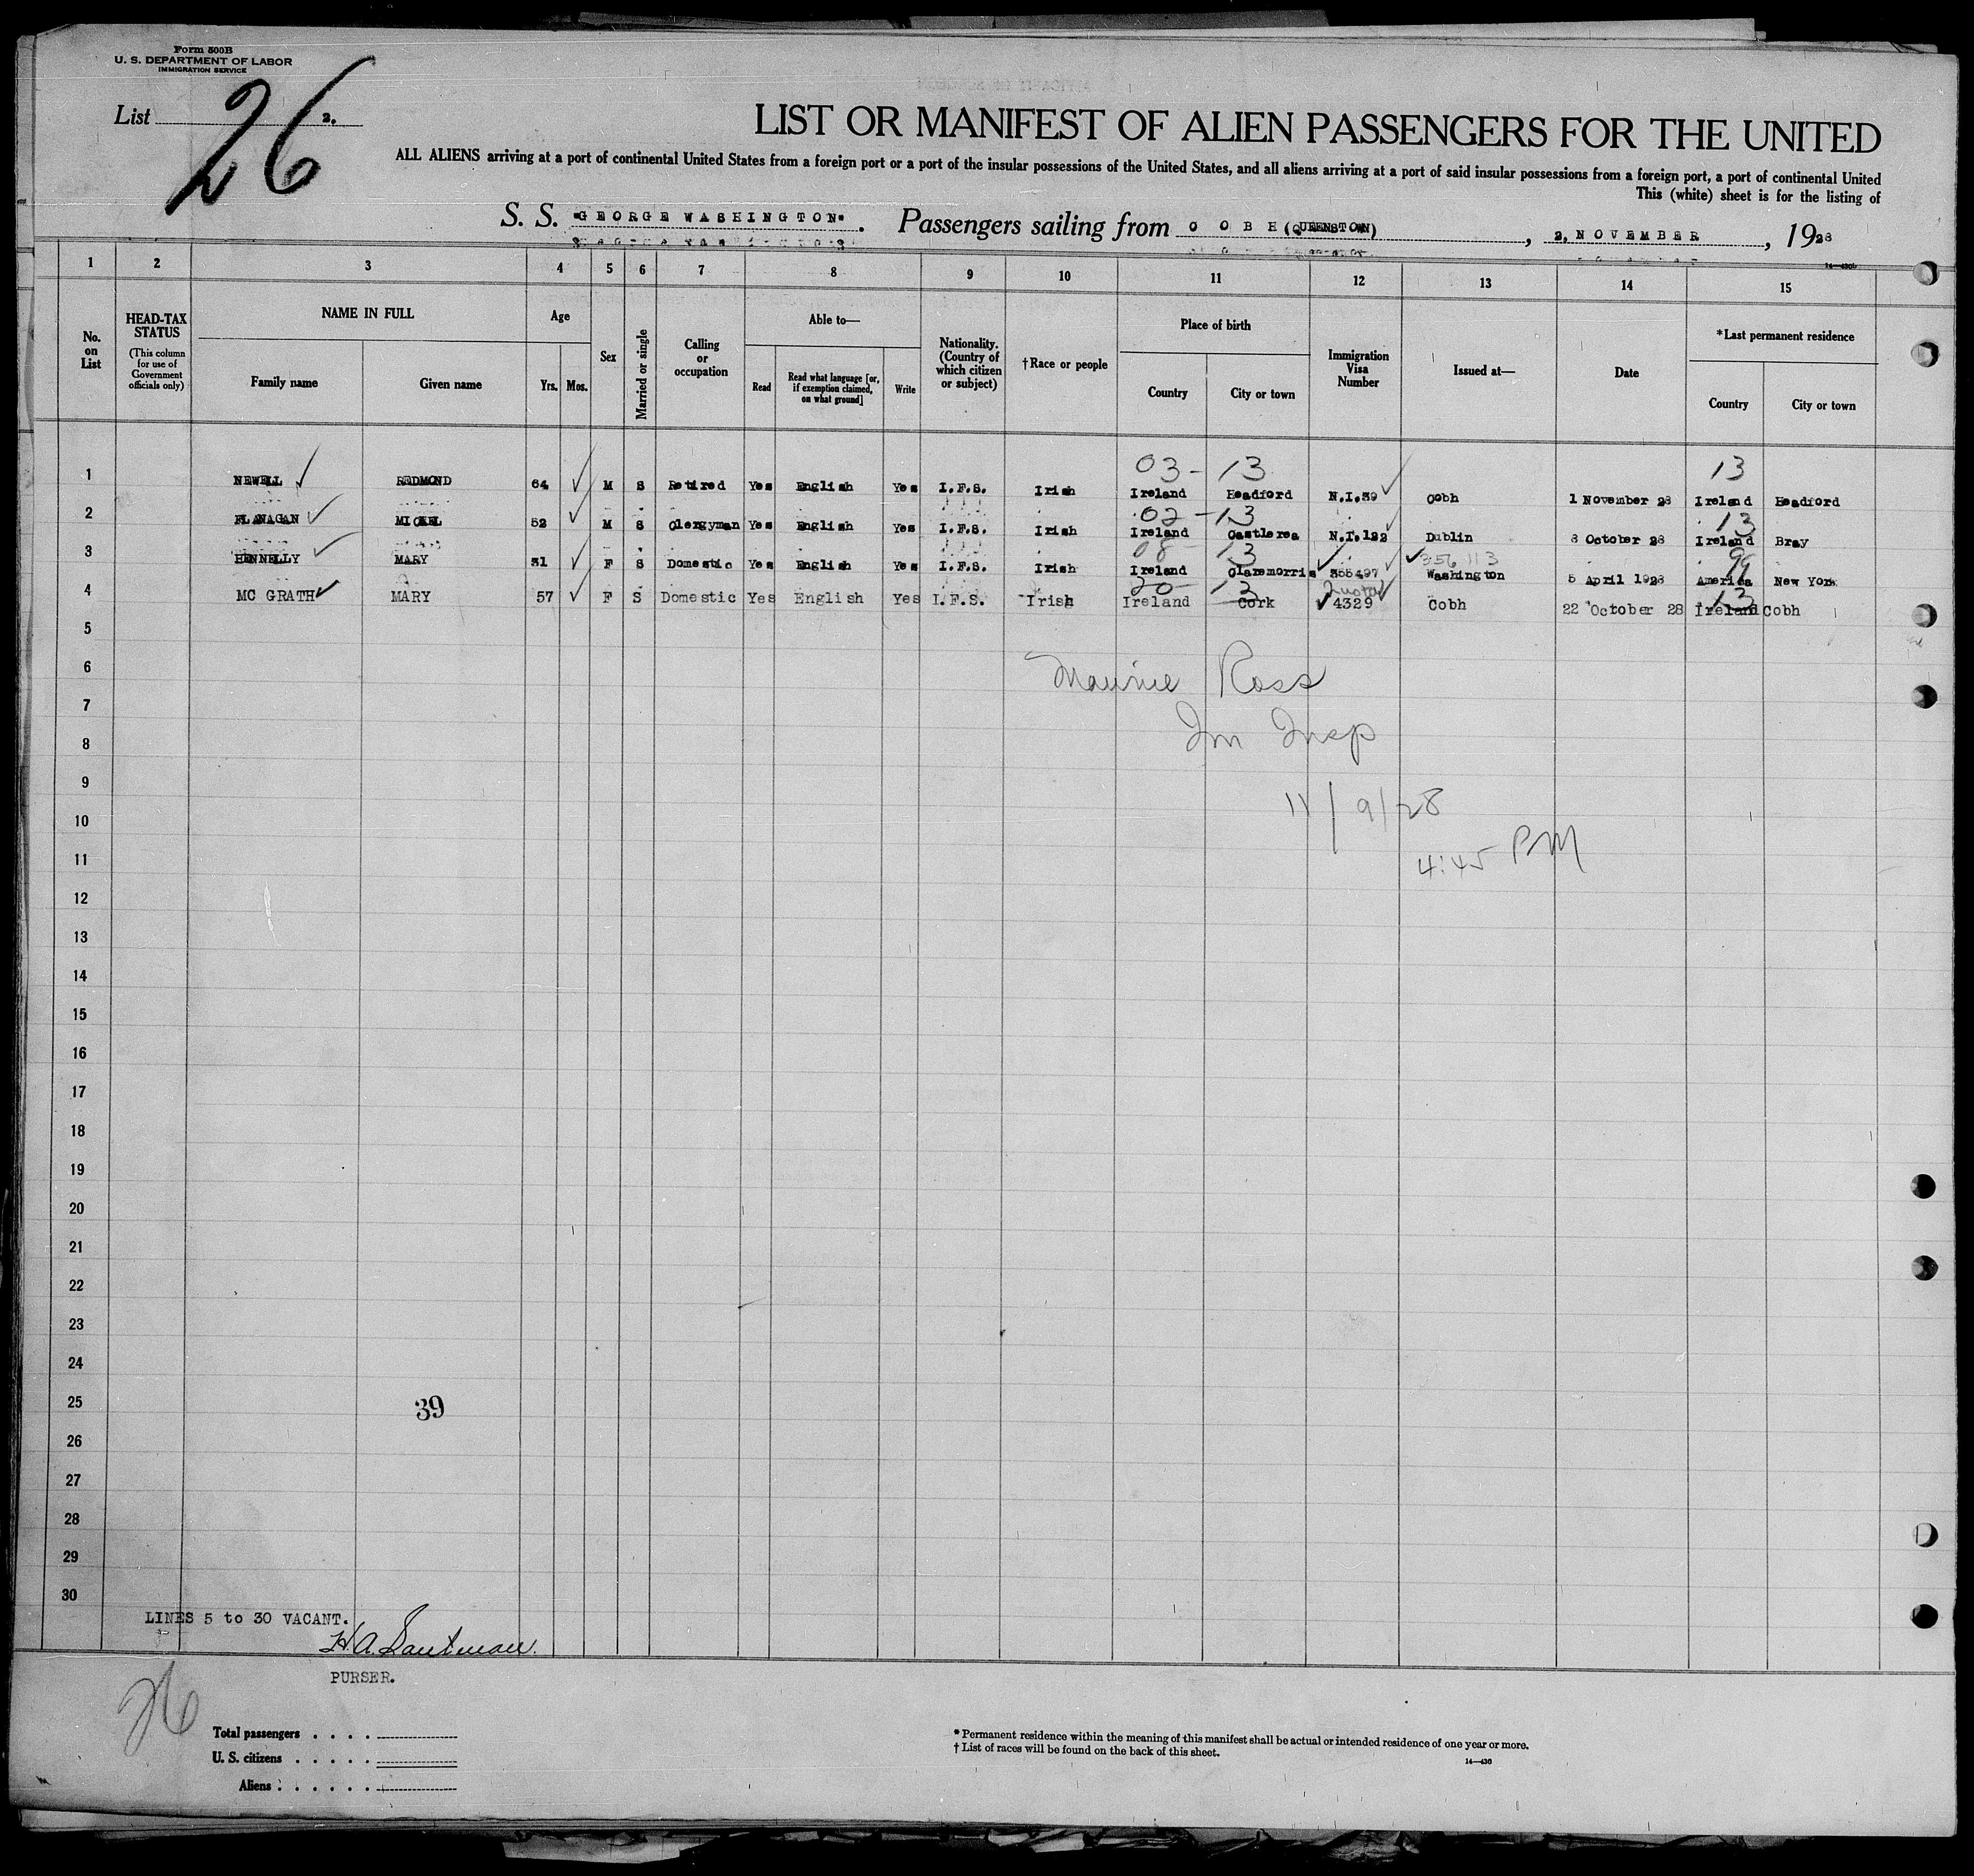 Form 500B
U. S. DEPARTMENT OF LABOR
IMMIGRATION SERVICE
List 2.
26
LIST OR MANIFEST OF ALIEN PASSENGERS FOR THE UNITED
ALL ALIENS arriving at a port of continental United States from a foreign port or a port of the insular possessions of the United States, and all aliens arriving at a port of said insular possessions from a foreign port, a port of continental United
This (white) sheet is for the listing of
S. S. "GEORGE WASHINGTON". Passengers sailing from COBH (QUEENSTOWN), 2, NOVEMBER, 1928
14—430b
1 2 3 4 5 6 7 8 9 10 11 12 13 14 15
No. on List
HEAD-TAX STATUS
(This column for use of Government officials only)
NAME IN FULL
Family name
Given name
Age
Yrs. Mos.
Sex
Married or single
Calling or occupation
Able to—
Read
Read what language [or, if exemption claimed, on what ground]
Write
Nationality. (Country of which citizen or subject)
†Race or people
Place of birth
Country
City or town
Immigration Visa Number
Issued at—
Date
*Last permanent residence
Country
City or town
03- 13 13
1 NEWELL REDMOND 64 M S Retired Yes English Yes I.F.S. Irish Ireland Headford N.I.59 Cobh 1 November 28 Ireland Headford
02-13 13
2 FLANAGAN MICKEL 52 M S Clergyman Yes English Yes I.F.S. Irish Ireland Castlerea N.I.122 Dublin 8 October 28 Ireland Bray
08- 13 356113 99
3 HENNELLY MARY 31 F S Domestic Yes English Yes I.F.S. Irish Ireland Claremorris 355497 Washington 5 April 1928 America New York
20- 13 Quota 13
4 MC GRATH MARY 57 F S Domestic Yes English Yes I.F.S. Irish Ireland Cork 4329 Cobh 22 October 28 Ireland Cobh
5
6
Maurice Ross
7
Im Insp
8
9
11/9/28
10
4:45 PM
11
12
13
14
15
16
17
18
19
20
21
22
23
24
25
39
26
27
28
29
30
LINES 5 to 30 VACANT.
PURSER.
26
Total passengers . . . .
U. S. citizens . . . . .
Aliens . . . . . .
* Permanent residence within the meaning of this manifest shall be actual or intended residence of one year or more.
† List of races will be found on the back of this sheet.
14—430